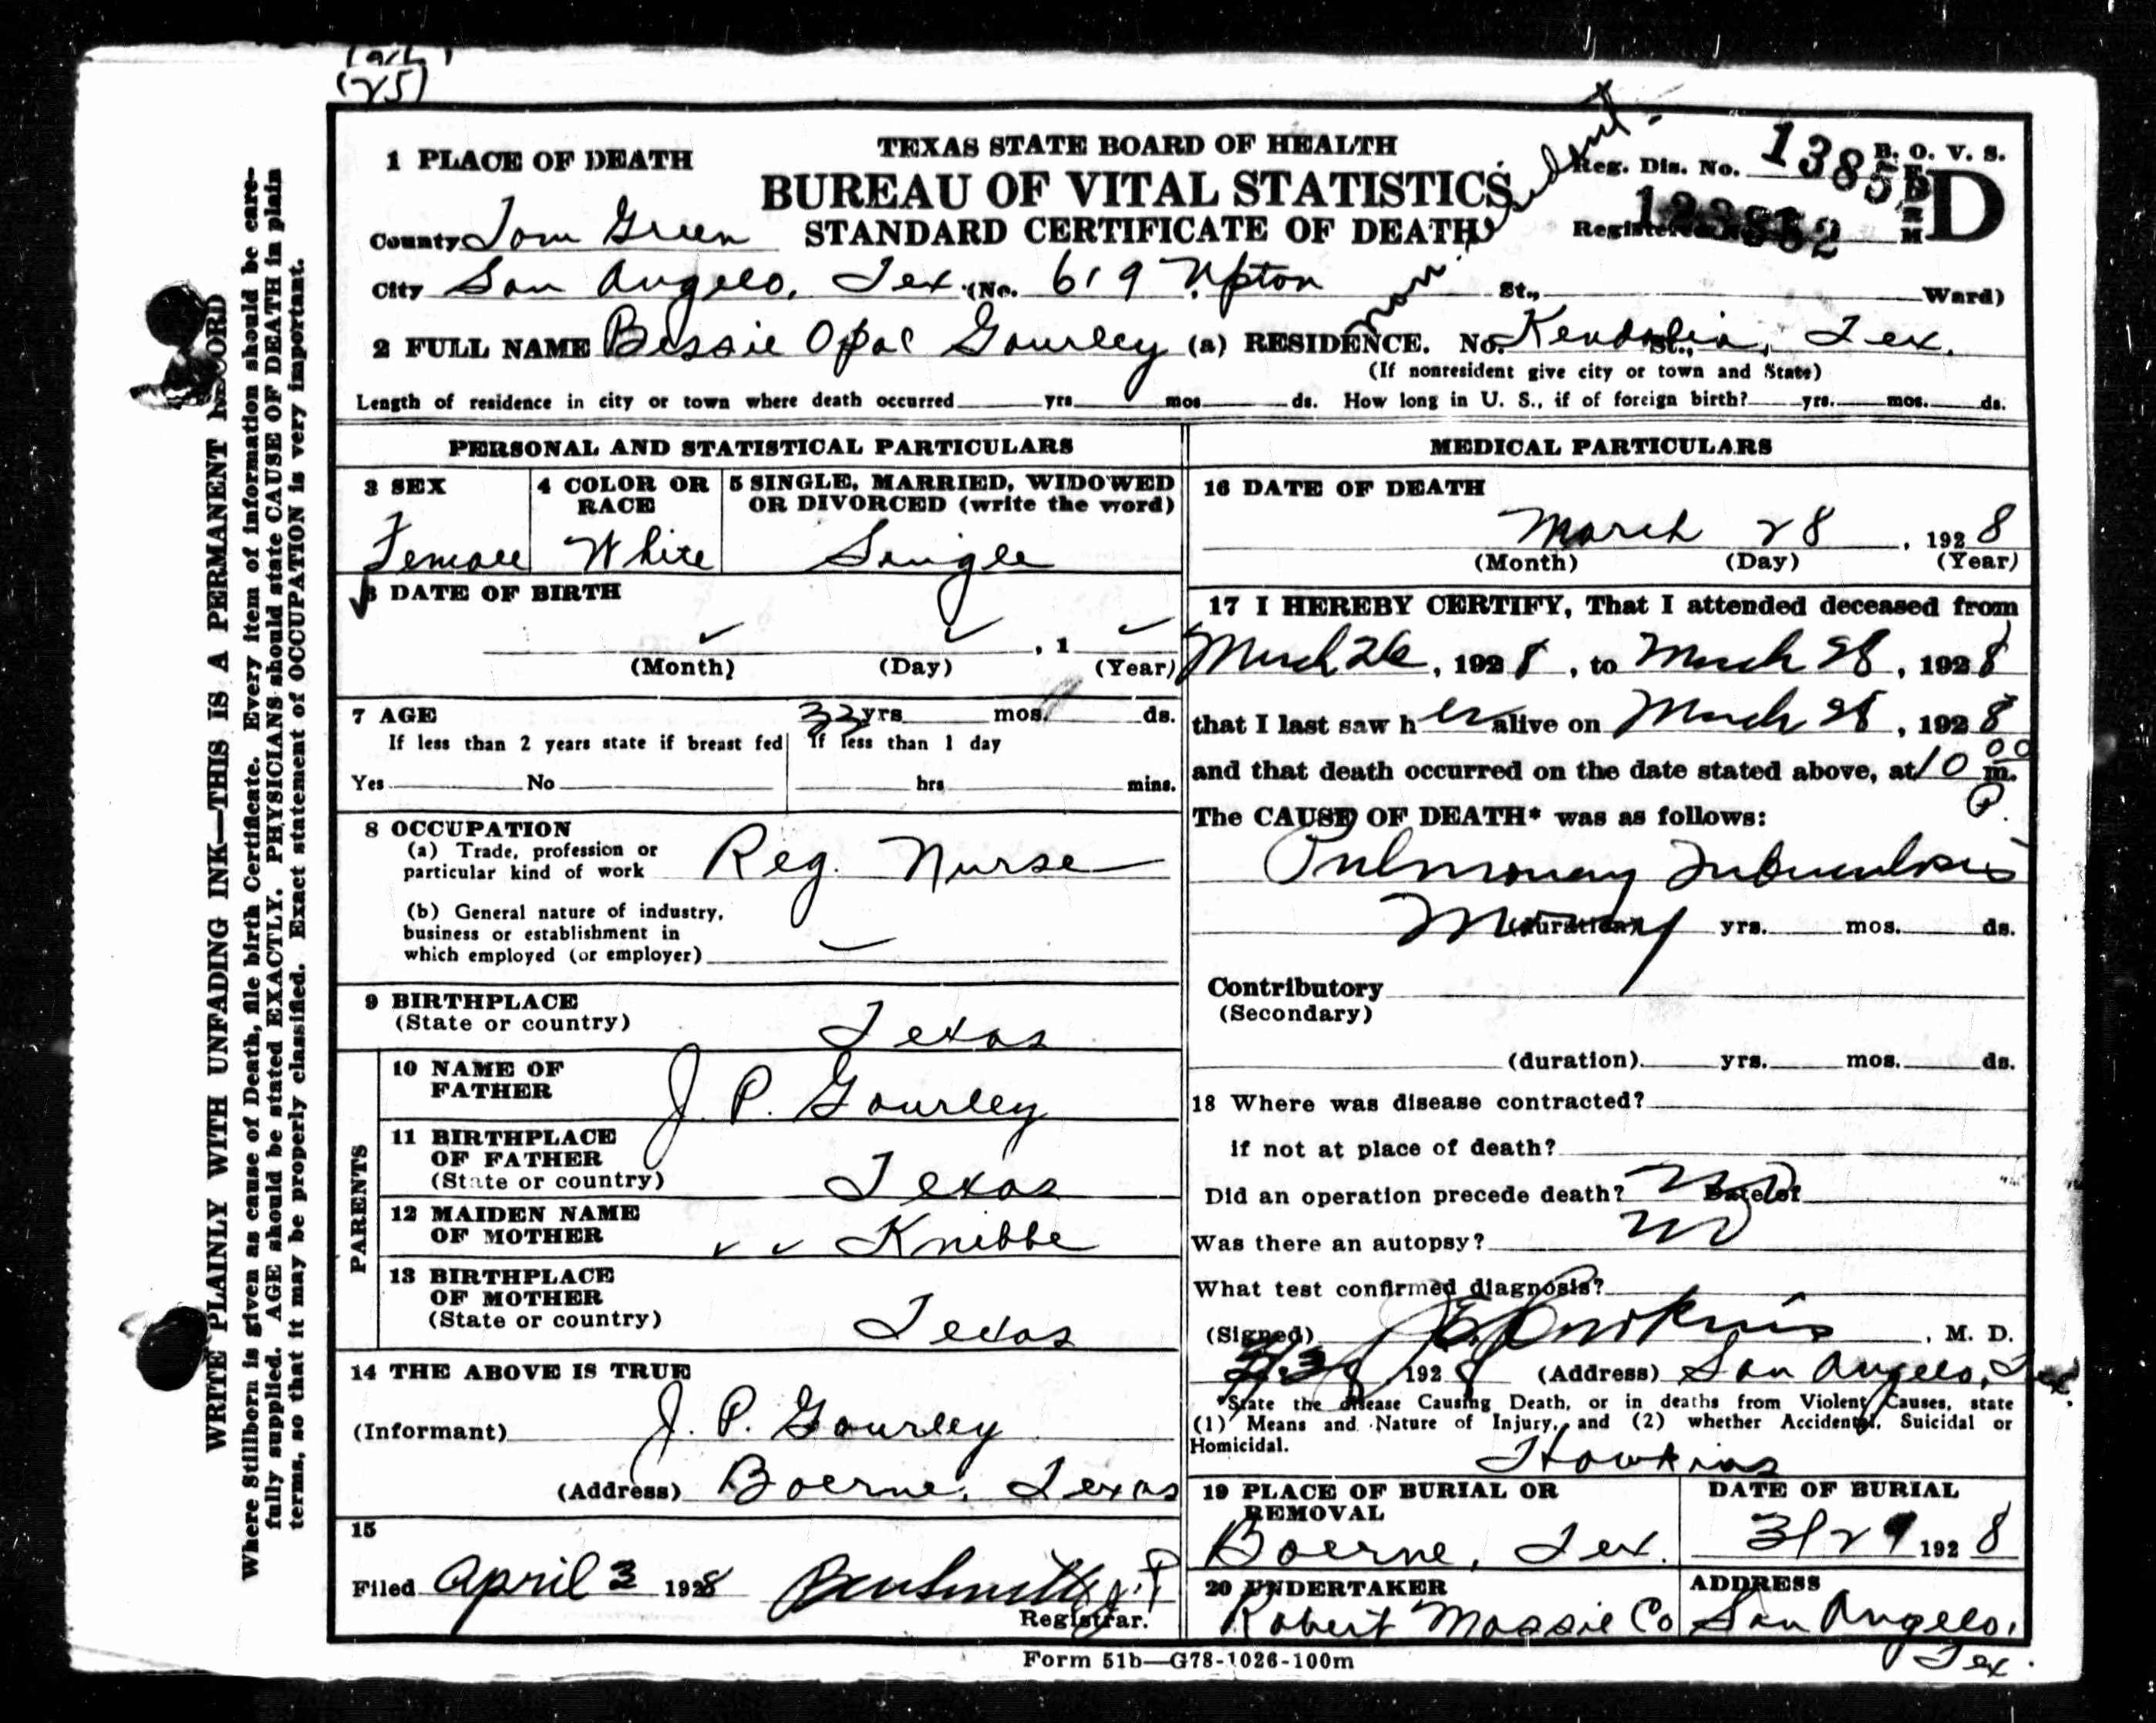 (25)
1 PLACE OF DEATH
TEXAS STATE BOARD OF HEALTH
BUREAU OF VITAL STATISTICS
STANDARD CERTIFICATE OF DEATH
B. O. V. S.
Reg. Dis. No.
D
County Tom Green
City San Angelo, Tex. (No. 619 Upton St., Ward)
2 FULL NAME Bessie Opal Gourley (a) RESIDENCE. No. Kendalia, Tex. St.,
(If nonresident give city or town and State)
Length of residence in city or town where death occurred yrs mos ds. How long in U. S., if of foreign birth? yrs. mos. ds.
PERSONAL AND STATISTICAL PARTICULARS
3 SEX
Female
4 COLOR OR RACE
White
5 SINGLE, MARRIED, WIDOWED
OR DIVORCED (write the word)
Single
6 DATE OF BIRTH
, 1
(Month) (Day) (Year)
7 AGE 32 yrs mos. ds.
If less than 2 years state if breast fed
If less than 1 day
Yes No hrs mins.
8 OCCUPATION
(a) Trade, profession or
particular kind of work Reg. Nurse
(b) General nature of industry,
business or establishment in
which employed (or employer)
9 BIRTHPLACE
(State or country) Texas
PARENTS
10 NAME OF
FATHER J. P. Gourley
11 BIRTHPLACE
OF FATHER
(State or country) Texas
12 MAIDEN NAME
OF MOTHER Knibbe
13 BIRTHPLACE
OF MOTHER
(State or country) Texas
14 THE ABOVE IS TRUE
(Informant) J. P. Gourley
(Address) Boerne, Texas
15
Filed April 3 1928
Registrar.
MEDICAL PARTICULARS
16 DATE OF DEATH
March 28, 1928
(Month) (Day) (Year)
17 I HEREBY CERTIFY, That I attended deceased from
March 26, 1928, to March 28, 1928
that I last saw her alive on March 28, 1928
and that death occurred on the date stated above, at 10 00 m.
P.
The CAUSE OF DEATH* was as follows:
Pulmonary Tuberculosis
Many (duration) yrs. mos. ds.
Contributory
(Secondary)
(duration) yrs. mos. ds.
18 Where was disease contracted?
if not at place of death?
Did an operation precede death? no Date of
Was there an autopsy? no
What test confirmed diagnosis?
(Signed) , M. D.
1928 (Address) San Angelo, Tex.
*State the disease Causing Death, or in deaths from Violent Causes, state
(1) Means and Nature of Injury, and (2) whether Accidental, Suicidal or
Homicidal.
Hawkins
19 PLACE OF BURIAL OR
REMOVAL
Boerne, Tex.
DATE OF BURIAL
3/29 1928
20 UNDERTAKER
Robert Massie Co
ADDRESS
San Angelo,
Tex.
Form 51b—G78-1026-100m
WRITE PLAINLY WITH UNFADING INK—THIS IS A PERMANENT RECORD
Where Stillborn is given as cause of Death, file birth Certificate. Every item of information should be care-
fully supplied. AGE should be stated EXACTLY. PHYSICIANS should state CAUSE OF DEATH in plain
terms, so that it may be properly classified. Exact statement of OCCUPATION is very important.